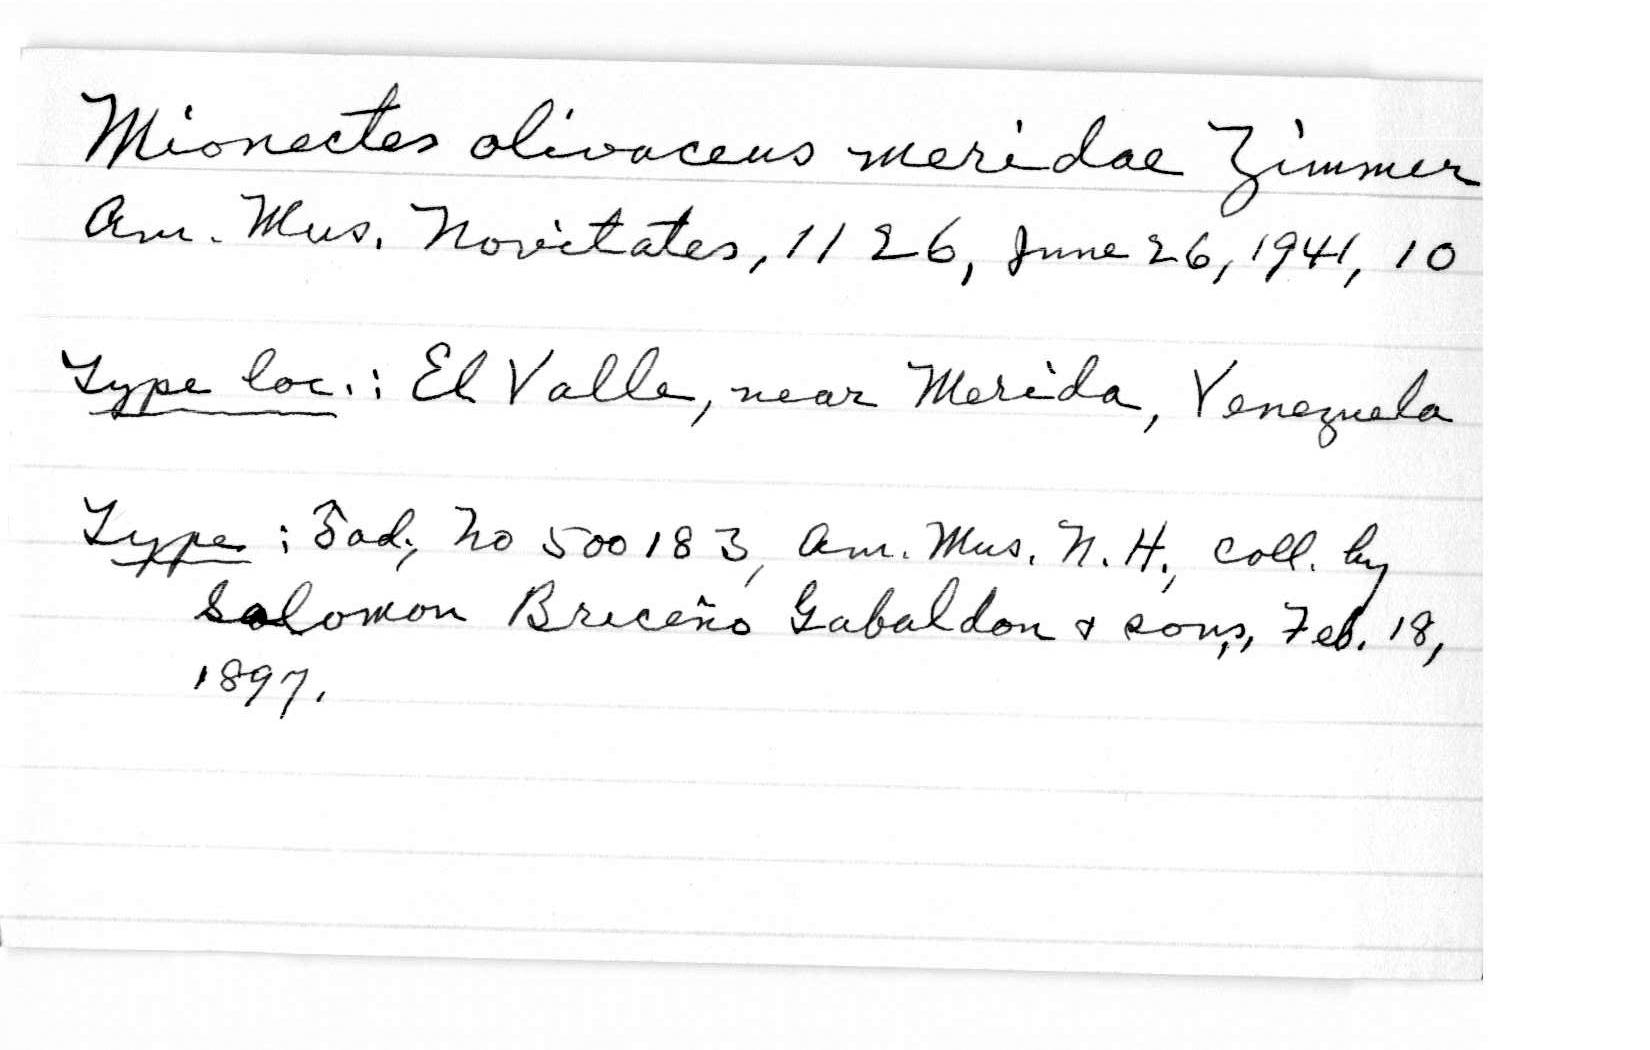 Mionectes olivaceus meridae Zimmer
Am. Mus. Novitates, 1126, June 26, 1941, 10
Type loc.: El Valle, near Merida, Venezuela
Type: ad., No 500183, Am. Mus. N. H., coll. by
Salomon Briceño Gabaldon & sons, Feb. 18,
1897.